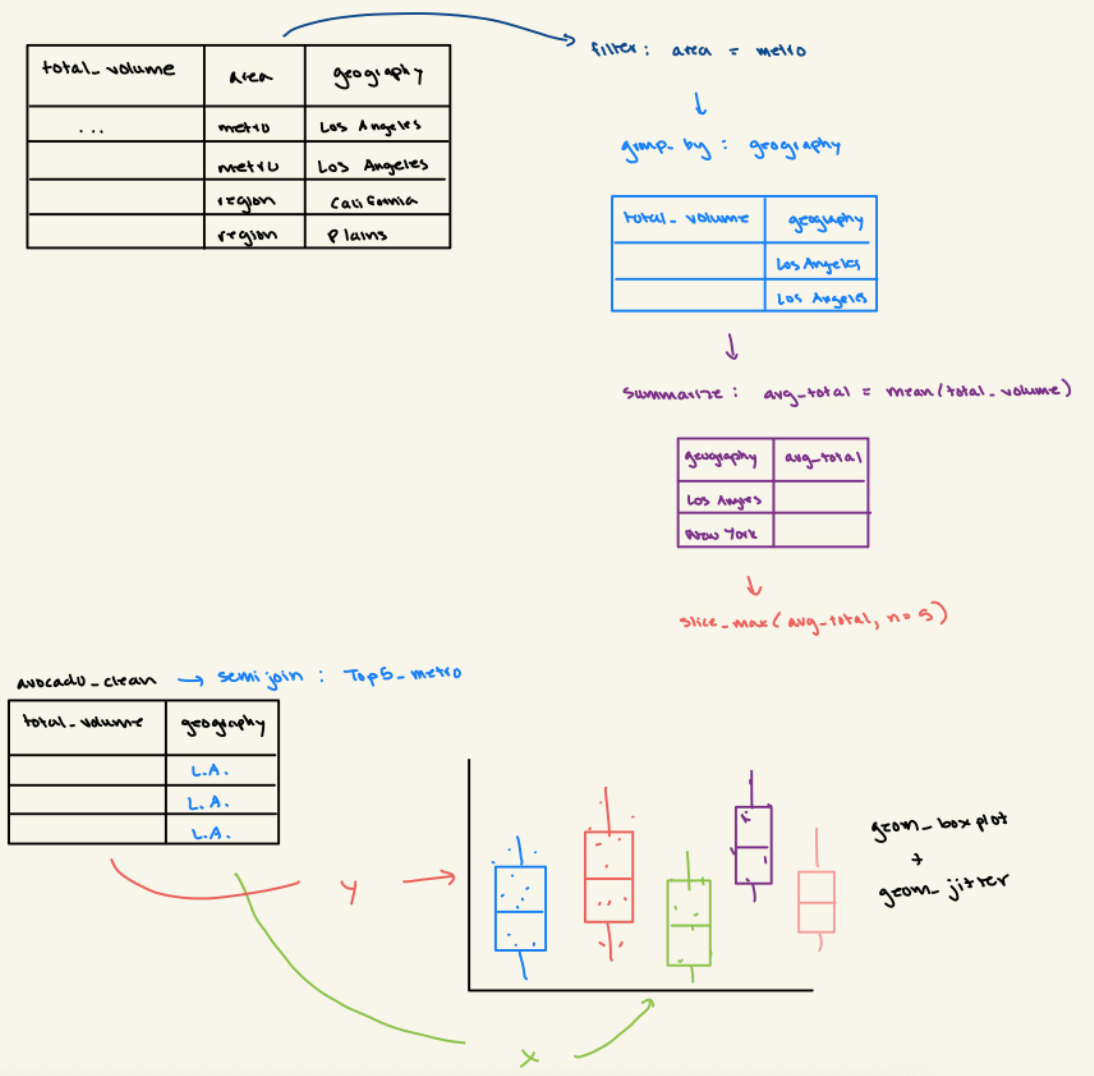 total_volume area geography
... metro Los Angeles
metro Los Angeles
region California
region Plains
filter: area = metro
group_by: geography
total_volume geography
Los Angeles
Los Angeles
summarize: avg_total = mean(total_volume)
geography avg_total
Los Angles
New York
slice_max(avg_total, n=5)
avocado_clean → semi join: Top5_metro
total_volume geography
L.A.
L.A.
L.A.
y
x
geom_boxplot
+
geom_jitter